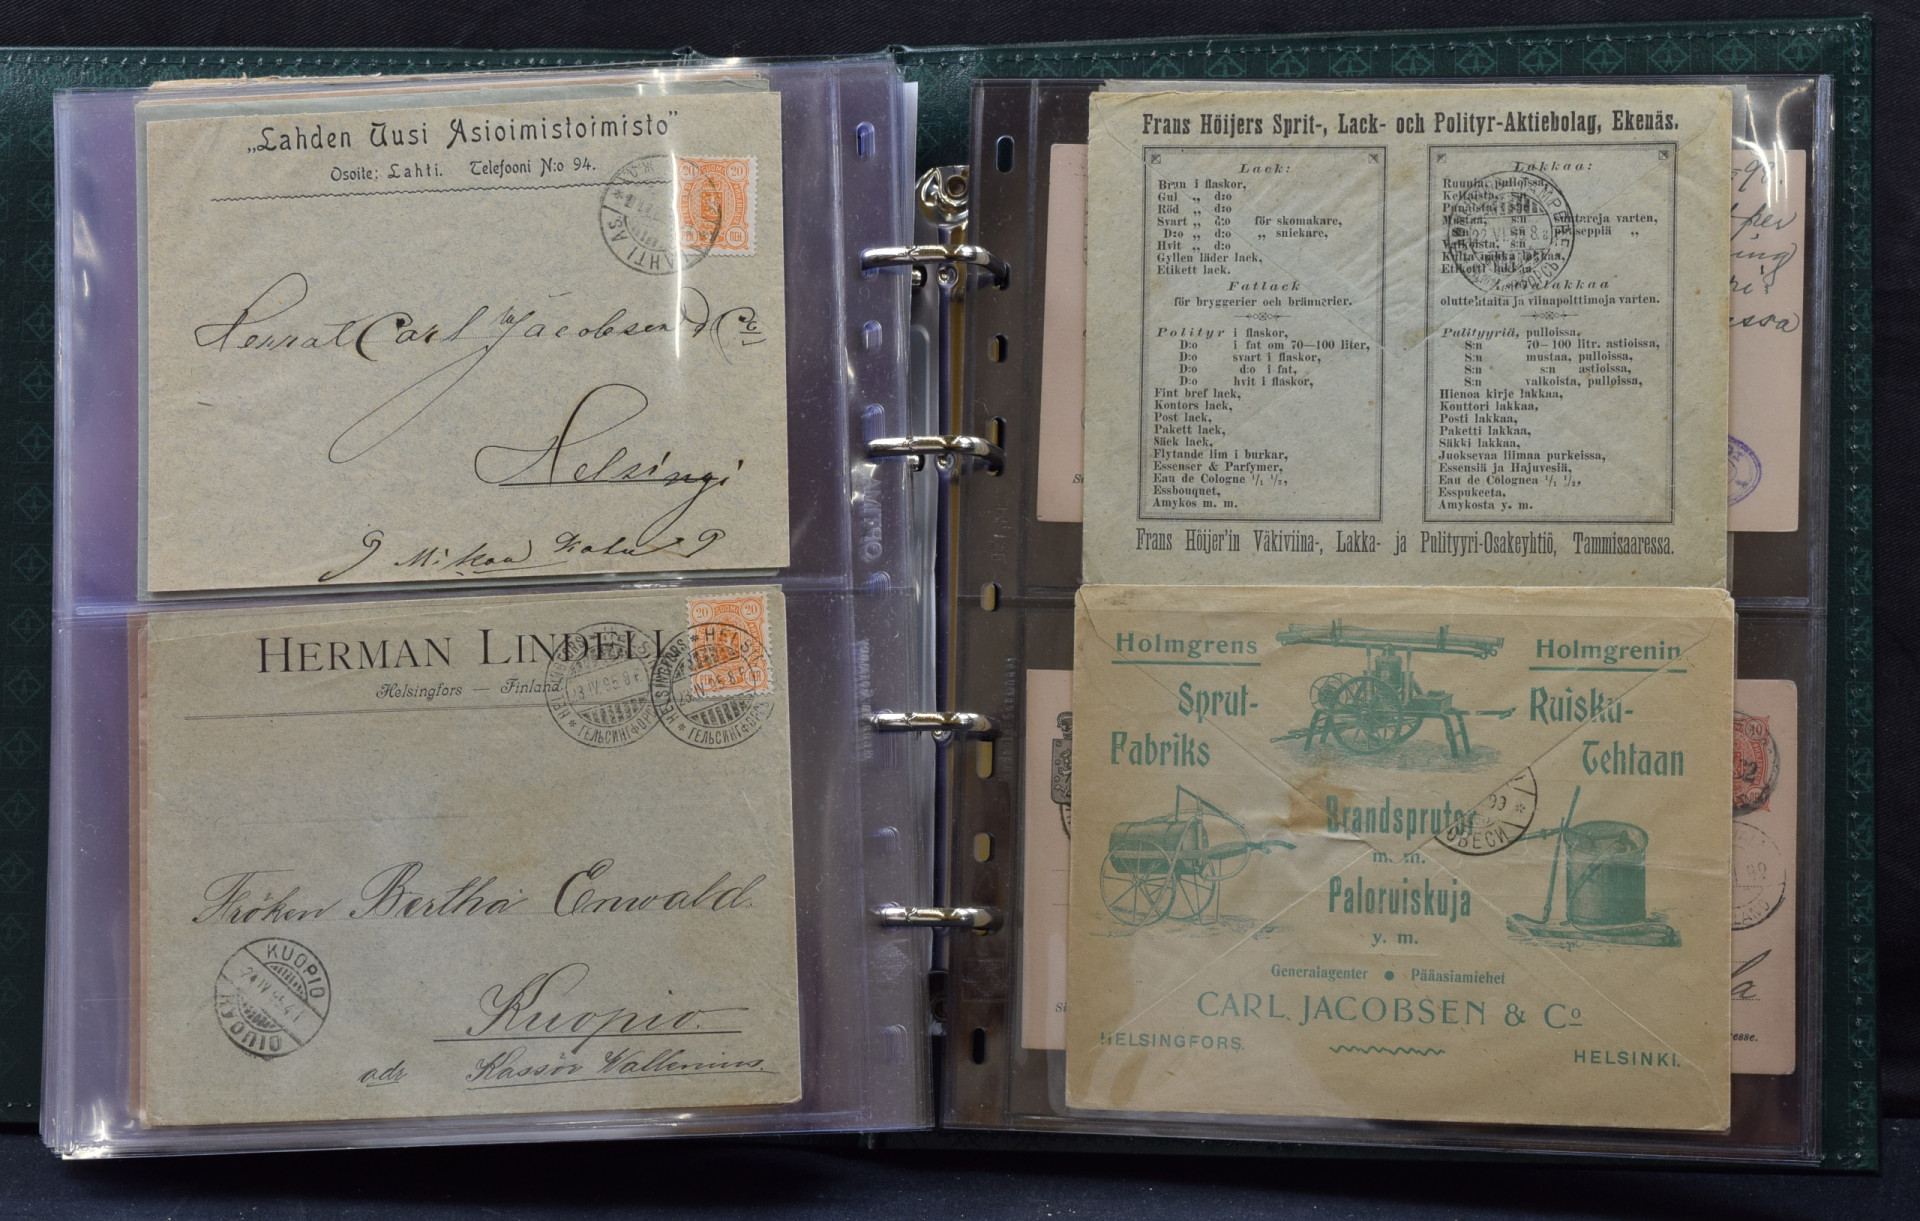 „Lahden Uusi Asioimistoimisto”
Osoite: Lahti. Telefooni N:o 94.
20 SUOMI 20
PEN.
LAHTI AS.
Herrat Carl Jacobsen & Co
Helsingi
9 Mikon Katu 9
HERMAN LINDELL
Helsingfors — Finland
20 SUOMI 20
HELSINGFORS
23 IV 95 8 e.
ГЕЛЬСИНГФОРСЪ
HELSINGFORS
23 IV 95 8 e.
ГЕЛЬСИНГФОРСЪ
Fröken Bertha Enwald.
KUOPIO
24 IV 95 4 i
КУОПІО
Kuopio.
adr Kassör Wallenius.
Frans Höijers Sprit-, Lack- och Polityr-Aktiebolag, Ekenäs.
Lack:
Brun i flaskor,
Gul „ d:o
Röd „ d:o
Svart „ d:o för skomakare,
D:o „ d:o „ snickare,
Hvit „ d:o
Gyllen läder lack,
Etikett lack.
Fatlack
för bryggerier och brännerier.
Polityr i flaskor,
D:o i fat om 70—100 liter,
D:o svart i flaskor,
D:o d:o i fat,
D:o hvit i flaskor,
Fint bref lack,
Kontors lack,
Post lack,
Pakett lack,
Säck lack,
Flytande lim i burkar,
Essenser & Parfymer,
Eau de Cologne 1/1 1/2,
Essbouquet,
Amykos m. m.
Lakkaa:
Ruunia, pulloissa,
Keltaista, s:n
Punaista, s:n
Mustaa, s:n suutareja varten,
S:n s:n puuseppiä „
Valkoista, s:n
Kulta nahka lakkaa,
Etiketti lakkaa.
Astialakkaa
oluttehtaita ja viinapolttimoja varten.
Pulityyriä, pulloissa,
S:n 70—100 litr. astioissa,
S:n mustaa, pulloissa,
S:n s:n astioissa,
S:n valkoista, pulloissa,
Hienoa kirje lakkaa,
Konttori lakkaa,
Posti lakkaa,
Paketti lakkaa,
Säkki lakkaa,
Juoksevaa liimaa purkeissa,
Essensiä ja Hajuvesiä,
Eau de Cölognea 1/1 1/2,
Esspukeeta,
Amykosta y. m.
Frans Höijer'in Väkiviina-, Lakka- ja Pulityyri-Osakeyhtiö, Tammisaaressa.
Holmgrens
Sprut-
Fabriks
Holmgrenin
Ruisku-
Tehtaan
Brandsprutor
m. m.
Paloruiskuja
y. m.
Generalagenter • Pääasiamiehet
CARL JACOBSEN & Co
HELSINGFORS.
HELSINKI.